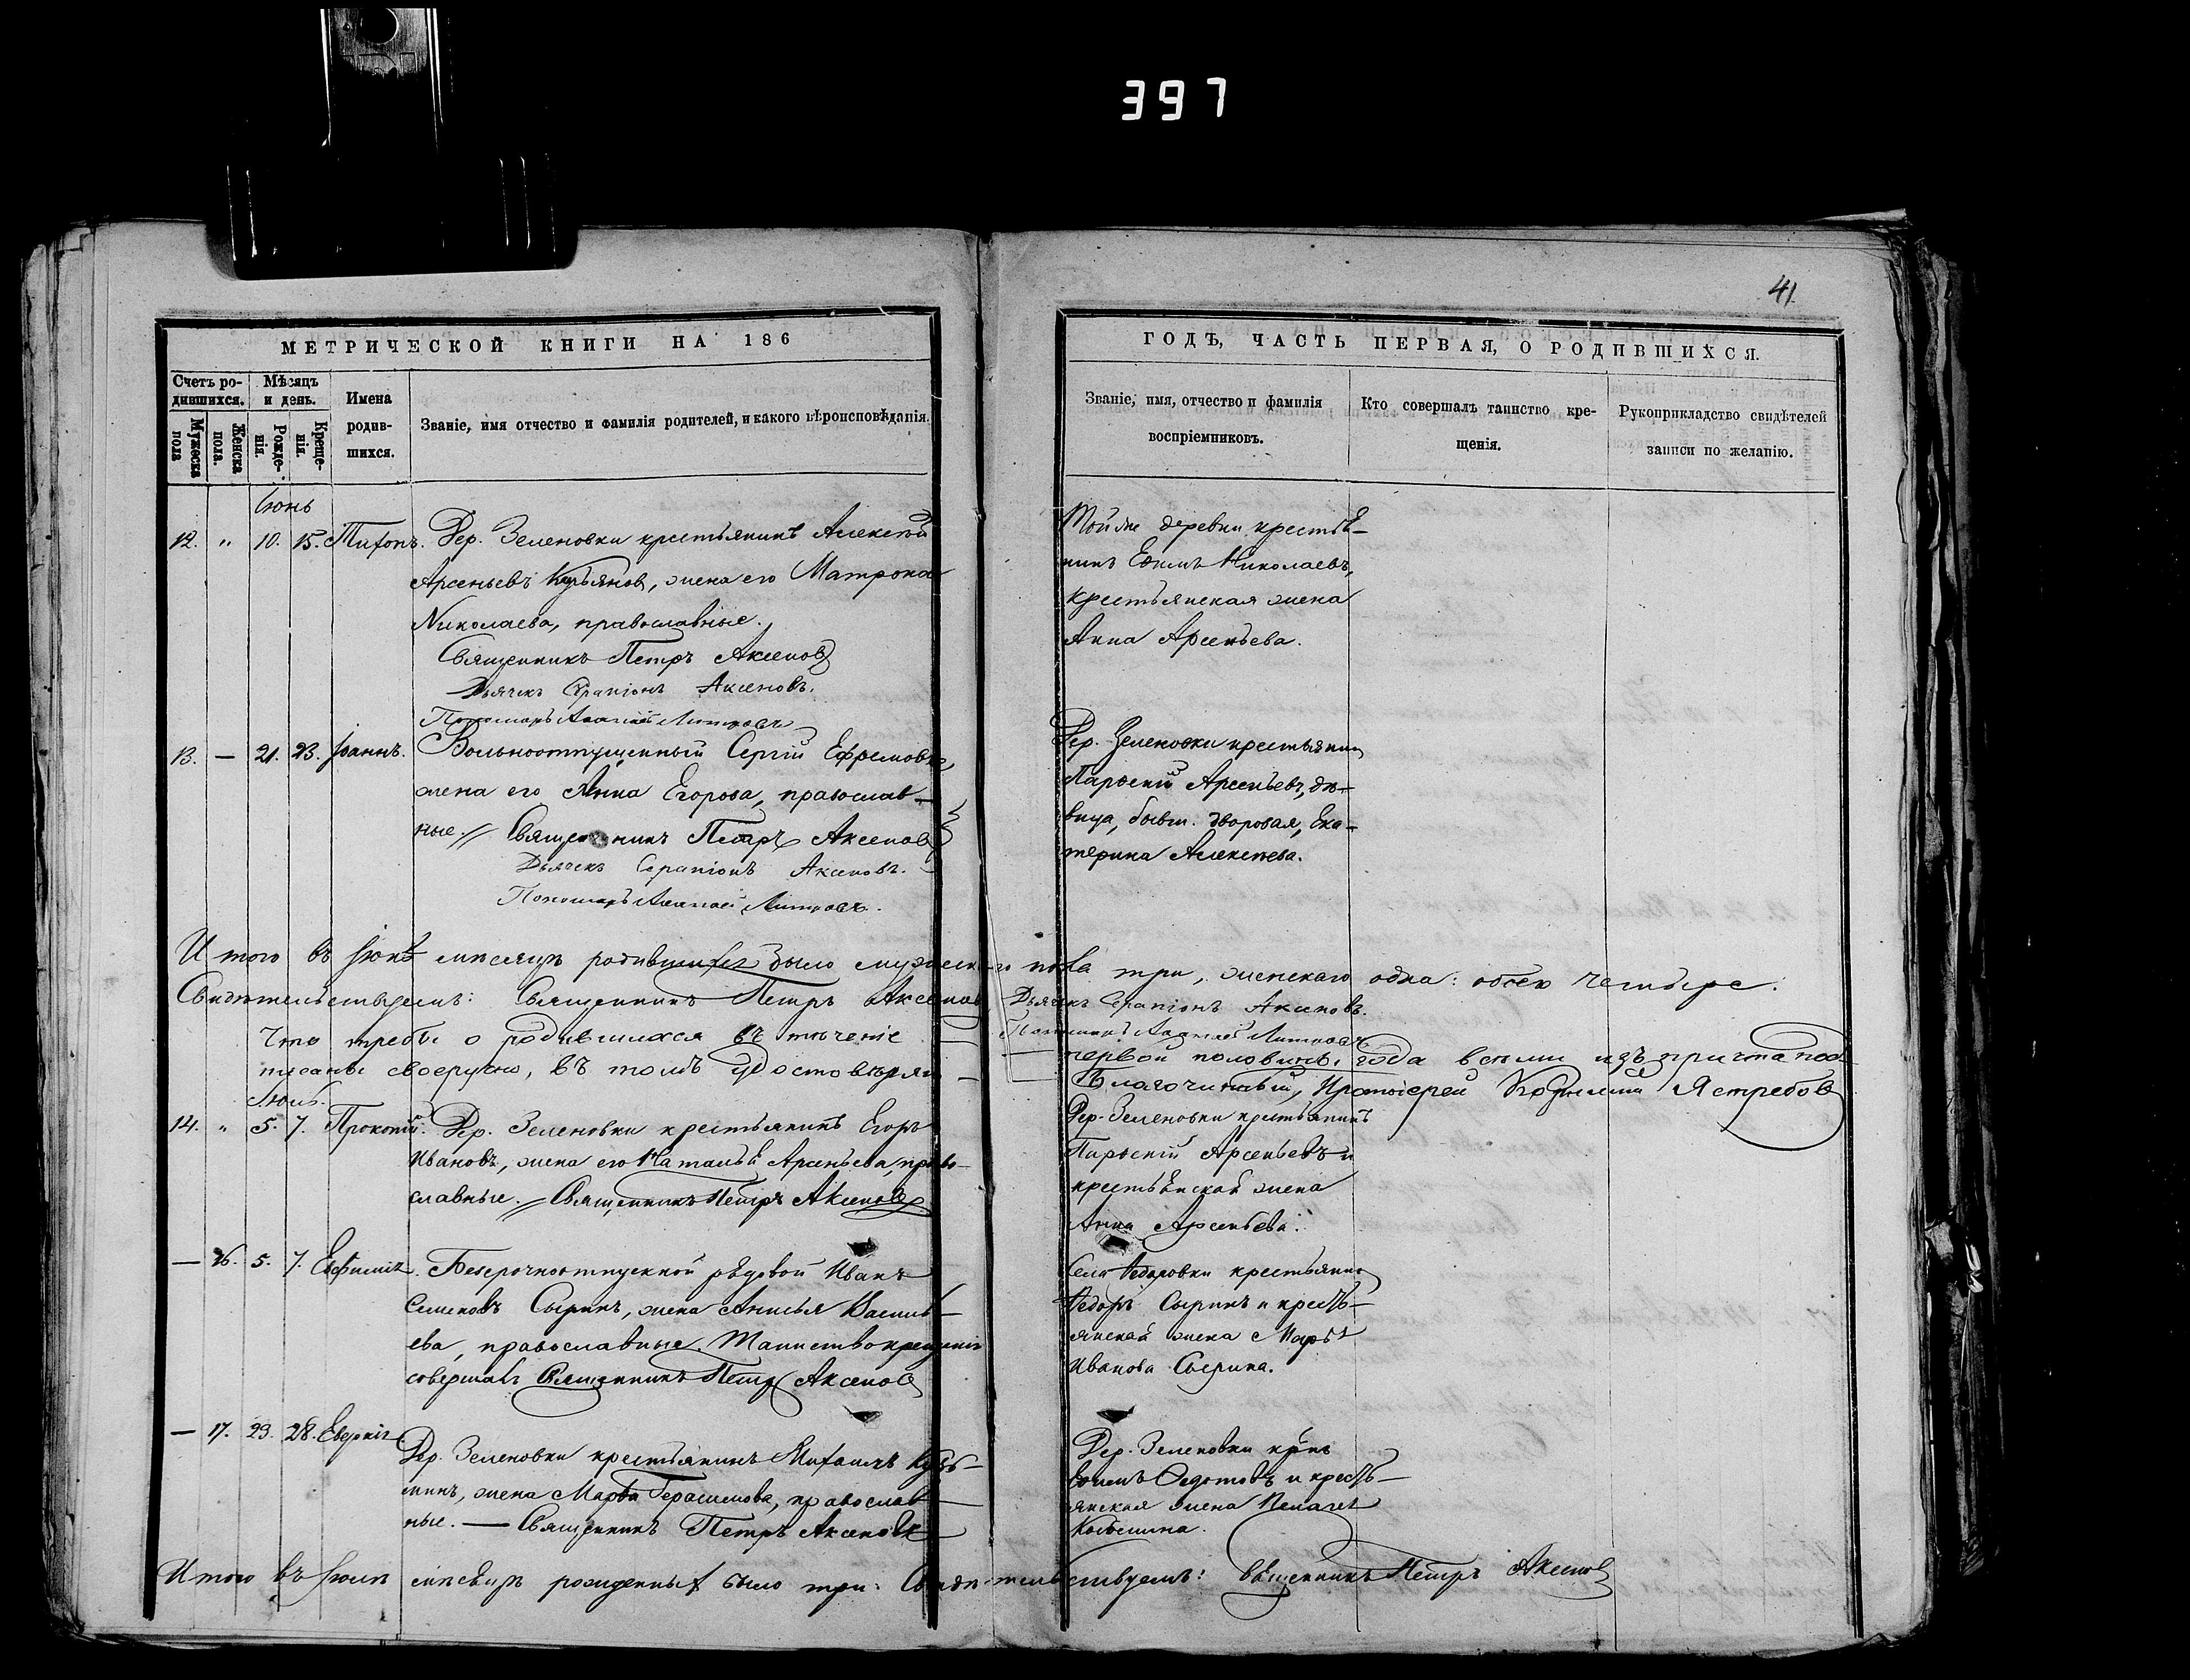 397
41
МЕТРИЧЕСКОЙ КНИГИ НА 186
ГОДЪ, ЧАСТЬ ПЕРВАЯ, О РОДИВШИХСЯ.
Счетъ ро-
дившихся.
Мужеска
пола
Женска
пола.
Мѣсяцъ
и день.
Рожде-
нія.
Креще-
нія.
Имена
родив-
шихся.
Званіе, имя отчество и фамилія родителей, и какого вѣроисповѣданія.
Званіе, имя, отчество и фамилія
воспріемниковъ.
Кто совершалъ таинство кре-
щенія.
Рукоприкладство свидѣтелей
записи по желанію.
Іюнь
12. " 10. 15. Тихонъ. Дер. Зеленовки крестьянинъ Алексѣй
Арсеньевъ жена его Матрона
Николаева, православные.
Священникъ Петръ Аксеновъ
Дьячекъ Серапіонъ Аксеновъ.
Пономарь
Тойже деревни крестья-
нинъ Ефимъ Николаевъ,
крестьянская жена
Анна Арсеньева.
13. — 21. 23. Іоаннъ. Вольноотпущенный Сергій Ефремовъ,
жена его Анна Егорова, православ-
ные. // Священникъ Петръ Аксеновъ
Дьячекъ Серапіонъ Аксеновъ.
Пономарь
Дер. Зеленовки крестьянинъ
Арсеньевъ, дѣ-
вица, бывш. дворовая, Ека-
терина Алексѣева.
Итого въ Іюнѣ мѣсяцѣ родившихся было мужескаго пола три, женскаго одна: обоего четыре.
Свидѣтельствуемъ: Священникъ Петръ Аксеновъ Дьячекъ Серапіонъ Аксеновъ.
Пономарь
Что требы о родившихся въ теченіе первой половины года всѣми изъ причта под-
писаны своеручно, въ томъ удостовѣряю Благочинный, Протоіерей Ястребовъ
Іюль.
14. " 5. 7. Прокопій. Дер. Зеленовки крестьянинъ Егоръ
Ивановъ, жена его Наталья Арсеньева, право-
славные. // Священникъ Петръ Аксеновъ
Дер. Зеленовки крестьянинъ
Арсеньевъ и
крестьянская жена
Анна Арсеньева.
— 16. 5. 7. Евфимія. рядовой Иванъ
Семеновъ Сыринъ, жена Анисья Василь-
ева, православные. Таинство крещенія
совершалъ Священникъ Петръ Аксеновъ
Села Ѳедоровки крестьянинъ
Ѳедоръ Сыринъ и кресть-
янская жена Марья
Иванова Сырина.
— 17. 23. 28. Дер. Зеленовки крестьянинъ Михаилъ Кузь-
минъ, жена Марѳа Герасимова, православ-
ные. — Священникъ Петръ Аксеновъ
Дер. Зеленовки
Федотовъ и кресть-
янская жена Пелагея
Итого въ Іюлѣ мѣсяцѣ рожденныхъ было три: Свидѣтельствуемъ: Священникъ Петръ Аксеновъ